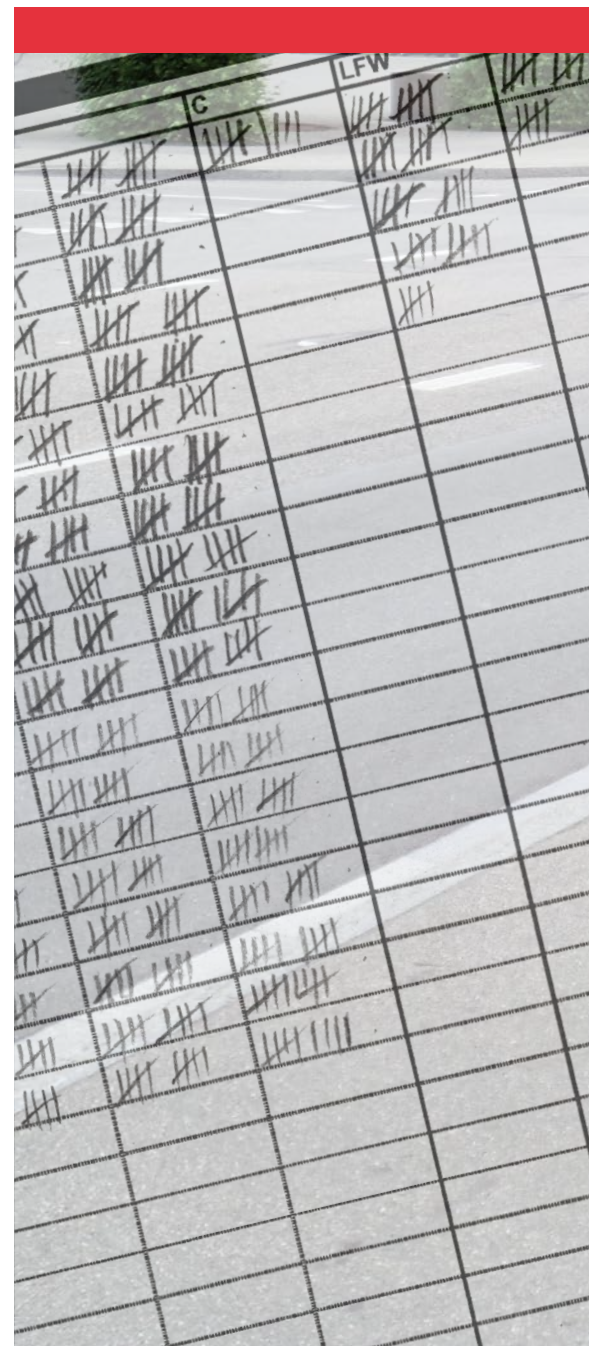 C
LFW